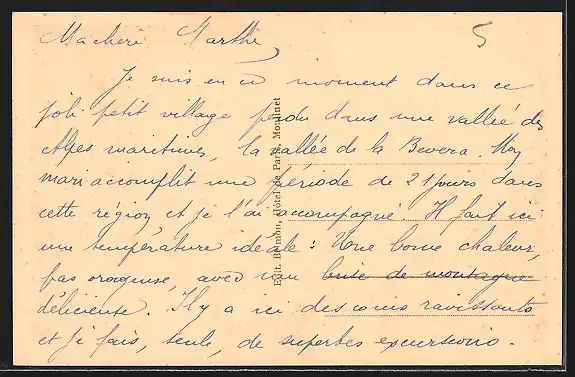 Ma cheri Marthe, 5
Je suis en ce moment dans ce
joli petit village perdu dans une vallée des
Alpes maritimes, la vallée de la Bevera. Mon
mari accomplit une période de 21 jours dans
cette région et je l'ai accompagné. Il fait ici
une température ideale : Une bonne chaleur,
pas orageuse, avec une brise de montagne
délicieuse. Il y a ici des coins ravissants
et je fais, seule, de superbes excursions.
Edit. Belmon, Hôtel de Paris, Moulinet